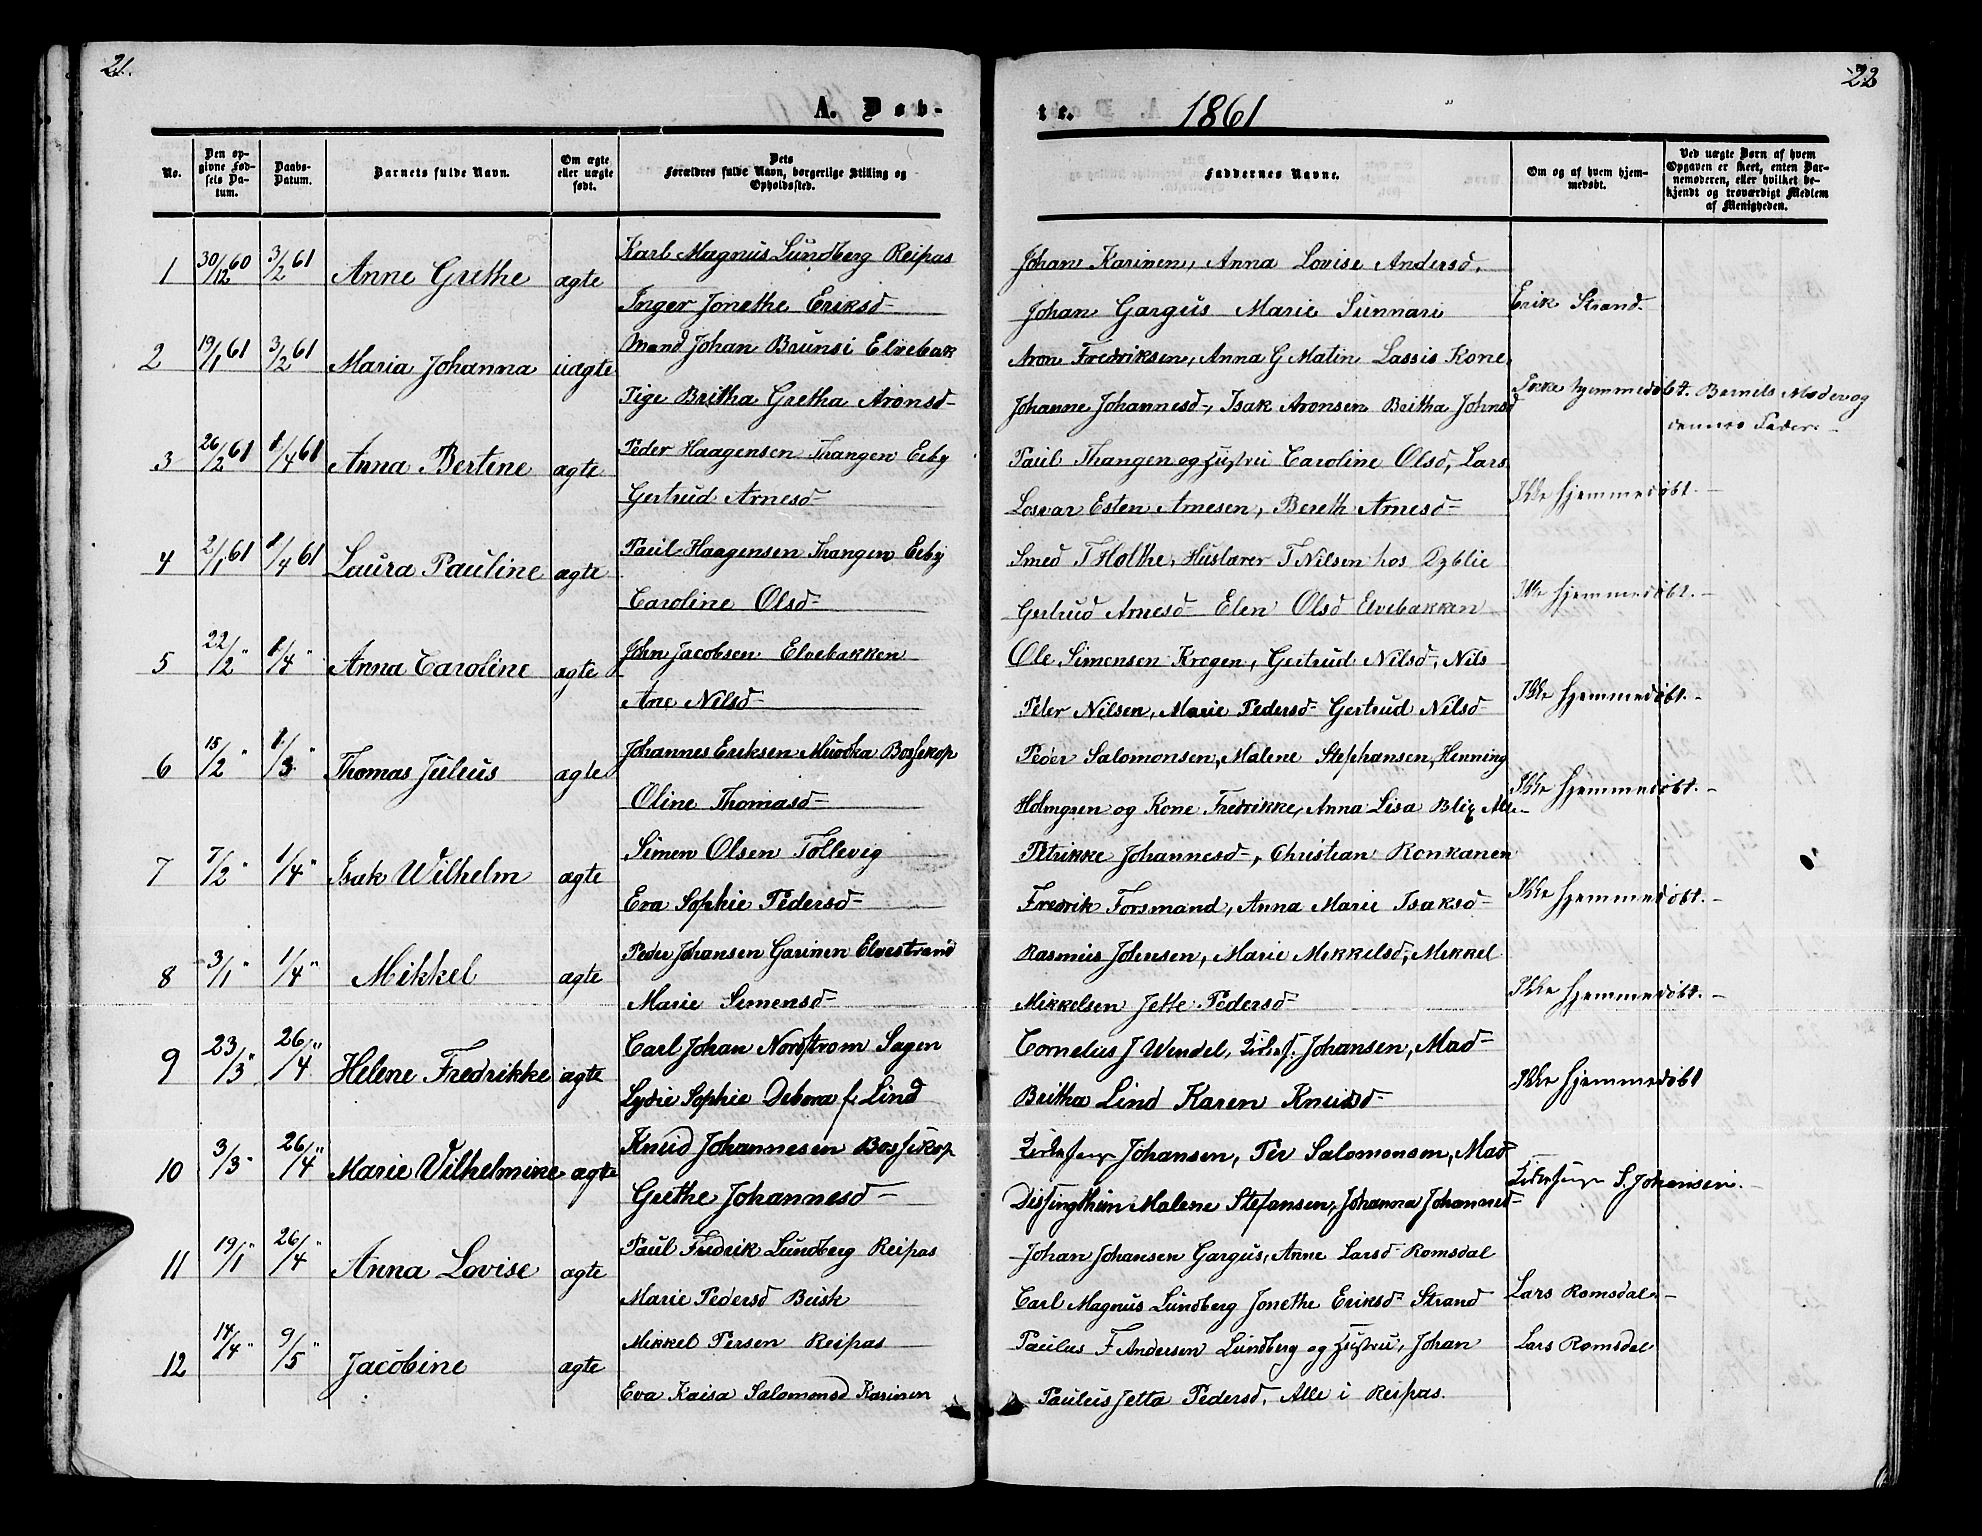 21.
A. Døb-
No.
Den op-
givne Fød-
sels Da-
tum.
Daabs-
Datum.
Barnets fulde Navn.
Om ægte
eller uægte
født.
Dets
Forældres fulde Navn, borgerlige Stilling og
Opholdssted.
1 30/12 60 3/2 61 Anne Grethe ægte
Karl Magnus Lundberg Reipas
Inger Jonethe Eriksd-
2 19/1 61 3/2 61 Maria Johanna uægte
Mand Johan Brunsi Elvebak
Pige Britha Gretha Aronsd-
3 26/2 61 1/4 61 Anna Bertine ægte
Peder Haagensen Thangen Eeby
Gertrud Arnesd-
4 2/1 61 1/4 61 Laura Pauline ægte
Paul Haagensen Thangen Eeby
Caroline Olsd-
5 22/2 " 1/4 " Anna Caroline ægte
John Jacobsen Elvebakken
Ane Nilsd-
6 15/2 " 1/3 " Thomas Julius ægte
Johannes Eriksen Muotka Bossekop
Oline Thomasd-
7 7/2 " 1/4 " Isak Wilhelm ægte
Simen Olsen Tollevig
Eva Sophie Pedersd-
8 3/1 " 1/4 " Mikkel ægte
Peder Johansen Garinen Elvestrand
Marie Simensd-
9 23/3 " 26/4 " Helene Fredrikke ægte
Carl Johan Nordstrom Sagen
Lydie Sophie Debora f. Lind
10 3/3 " 26/4 " Marie Vilhelmine ægte
Knud Johannesen Bossekop
Grethe Johannesd-
11 19/1 " 26/4 " Anna Lovise ægte
Paul Fredrik Lundberg Reipas
Marie Pedersd Beisk
12 14/4 " 9/5 " Jacobine ægte
Mikkel Persen Reipas
Eva Kaisa Salomonsd Karinen
22
te. 1861
Faddernes Navne.
Om og af hvem hjem-
medøbt.
Ved uægte Børn af hvem
Opgaven er skeet, enten Bar-
nemoderen, eller hvilket be-
kjendt og troværdigt Medlem
af Menigheden.
Johan Karinen, Anna Lovise Andersd.
Johan Gargus Marie Sunnari
Erik Strand
Aron Fredriksen, Anna G Matin Lassis Kone
Johanne Johannesd-, Isak Aronsen Britha Johnsd
Ikke hjemmedøbt. Barnets Moder og
dennes Fader
Paul Thangen og Hustru Caroline Olsd, Lars
Losvar Esten Arnesen, Bereth Arnesd-
Ikke hjemmedøbt.
Smed T Holthe, Huslærer T Nilsen hos Dyblie
Gertrud Arnesd- Elen Olsd Elvebakken
Ikke hjemmedøbt.
Ole Simensen Krogen, Gertrud Nilsd, Nils
Peter Nilsen, Marie Pedersd- Gertrud Nilsd-
Ikke hjemmedøbt.
Peder Salomonsen, Malene Stephansen, Henning
Holmgren og Kone Fredrikke, Anna Lisa
Ikke hjemmedøbt.
Petrikke Johannesd-, Christian Ronkanen
Fredrik Forsmand, Anna Marie Isaksd-
Ikke hjemmedøbt.
Rasmus Johnsen, Marie Mikkelsd, Mikkel
Mikkelsen Jette Pedersd-
Ikke hjemmedøbt.
Cornelius J Wendel, Johansen, Mad-
Britha Lind Karen Knudsd-
Ikke hjemmedøbt
Kirkesanger Johansen, Per Salomonsen, Mad
Dissingthun Malene Stefansen, Johanna Johannesd-
Kirkesanger S. Johansen.
Johan Johansen Gargus, Anne Larsd- Romsdal
Carl Magnus Lundberg Jonethe Eriksd- Strand
Lars Romsdal
Paulus F Andersen Lundberg og Hustru, Johan
Paulus Jetta Pedersd, Alle i Reipas.
Lars Romsdal